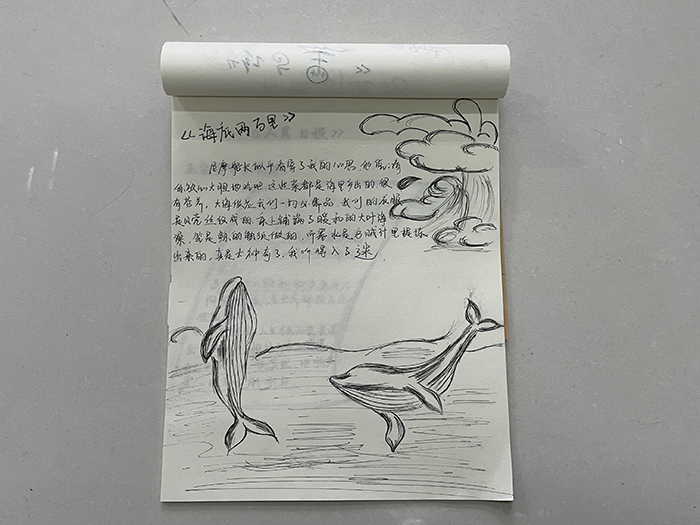 《海底两万里》
尼摩船长似乎看穿了我的心思,他说:请
你放心大胆地吃吧 这些菜都是海里多出的 很
有营养,大海供应我们一切必需品。我们的衣服
是贝壳丝纹织的.床上铺满了暖和的大叶海
藻,笔是鲸的触须做的,
出来的,真是太神奇了,我听得入了迷.